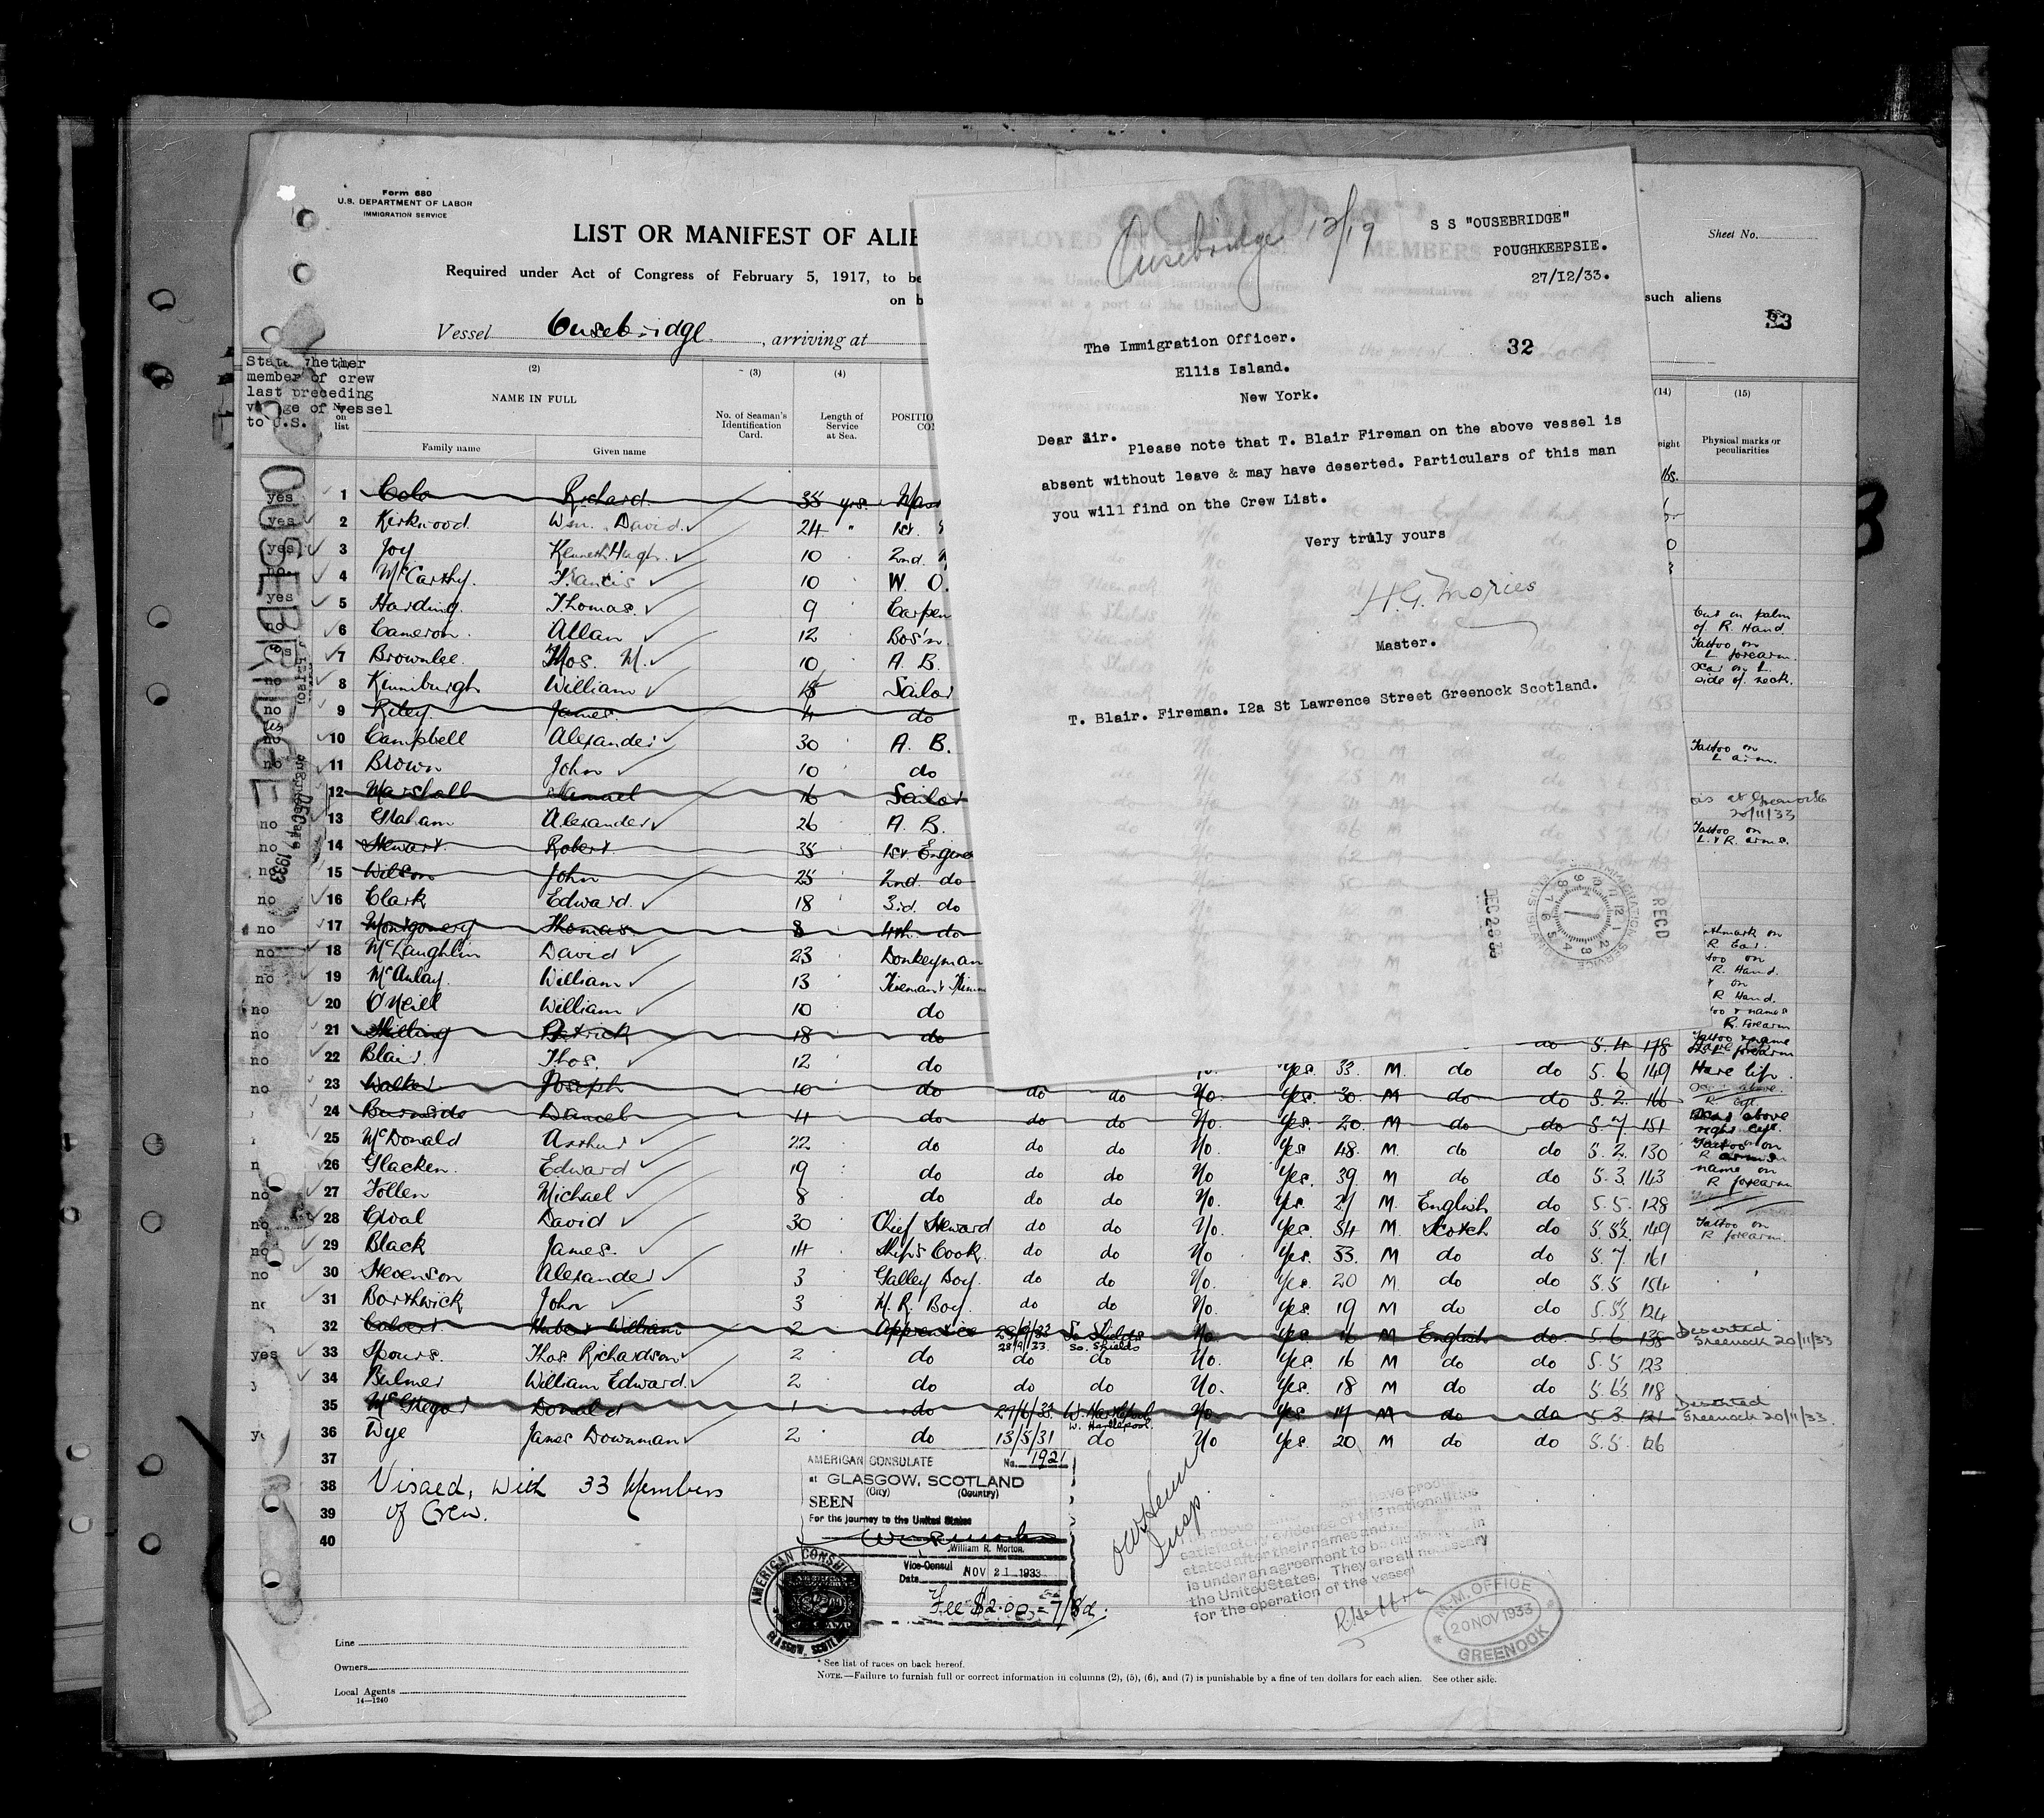 Form 680
U.S. DEPARTMENT OF LABOR
IMMIGRATION SERVICE
LIST OR MANIFEST OF ALIE
Required under Act of Congress of February 5, 1917, to be
on b
Vessel Ousebridge, arriving at
Sheet No.
such aliens
33
State whether
member of crew
last preceding
voyage of vessel
to U.S.
No. on list
(2)
NAME IN FULL
Family name Given name
(3)
No. of Seaman's Identification Card.
(4)
Length of Service at Sea.
POSITIO
CO
(14)
eight
(15)
Physical marks or peculiarities
lbs.
OUSEBRIDGE
DEC 1933
yes 1 Cole Richard 35 yrs. Mas
yes 2 Kirkwood Wm. David 24 " 1st.
yes 3 Joy Kenneth Hugh 10 2nd.
no 4 McCarthy. Francis 10 W. O.
yes 5 Harding. Thomas 9 Carpen
no 6 Cameron. Allan 12 Bos'n
7 Brownlee. Thos. M. 10 A. B.
no 8 Kinniburgh William 15 Sailor
no 9 Riley. James. 4 do
no 10 Campbell Alexander 30 A. B.
no 11 Brown John 10 do
12 Marshall Samuel 16 Sailor
no 13 Graham Alexander 26 A. B.
no 14 Stewart Robert 35 1st Engine
no 15 Wilson John 25 2nd. do
no 16 Clark Edward. 18 3rd. do
no 17 Montgomery Thomas 8 4th. do
no 18 McLaughlin David 23 Donkeyman
no 19 McAulay. William 13 Fireman &
no 20 O'Neill William 10 do
no 21 Skilling Patrick 18 do do 5. 4 178
no 22 Blair. Thos. 12 do Yes. 33. M. do do 5. 6 149 Hare lip.
no 23 Walker Joseph 10 do do do No. Yes. 30. M do do 5. 2. 166
24 Burnside Daniel 4 do do do No. Yes. 20. M do do 5. 7 151 Scar above right eye.
25 McDonald Arthur 22 do do do No. Yes 48. M. do do 5. 2. 130 Tattoo on R arm
26 Glacken. Edward 19 do do do No Yes. 39. M do do 5. 3. 143 name on R forearm
no 27 Follen Michael 8 do do do No. Yes. 27 M. English do 5. 5. 128
no 28 Coval David 30 Chief Steward do do No. Yes. 54 M Scotch do 5. 5½. 149 Tattoo on R forearm
no 29 Black James. 14 Ships Cook do do No Yes. 33. M do do 5. 7. 161
no 30 Stevenson Alexander 3 Galley Boy. do do No. Yes. 20 M do do 5. 5 154
no 31 Borthwick John 3 M. R. Boy. do do No. Yes. 19 M do do 5. 5½ 124
32 Calvert Hubert William 2 Apprentice So. Shields No Yes 16 M English do 5. 6 138 Deserted Greenock 20/11/33
28/9/33. So. Shields
yes 33 Spours. Thos. Richardson 2 do do do No. Yes. 16 M do do 5. 5 123
34 Bulmer William Edward. 2 do do do No. Yes. 18 M do do 5. 6½ 118
35 McGregor Donald 1 do 27/6/33 W. Hartlepool No Yes 17 M do do 5. 3. 121 Deserted Greenock 20/11/33.
W. Hartlepool.
36 Dye James Downman 2 do 13/5/31 do No Yes. 20 M do do 5. 5. 126
37
38 Visaed, with 33 Members
39 of Crew.
40
Scar on palm
of R. Hand
Tattoo on
L forearm.
scar on L.
side of neck.
Tattoo on
L arm.
at Greenock
20/11/33
Tattoo on
L. & R. arms.
thmark on
R Ear.
too on
R. Hand.
on
R Hand.
too & names
R. Forearm
Tattoo & name
L. forearm
Ousebridge 12/19
S S "OUSEBRIDGE"
POUGHKEEPSIE.
27/I2/33.
32
The Immigration Officer.
Ellis Island.
New York.
Dear Sir.
Please note that T. Blair Fireman on the above vessel is
absent without leave & may have deserted. Particulars of this man
you will find on the Crew List.
Very truly yours
H. G. Mories
Master.
T. Blair. Fireman. I2a St Lawrence Street Greenock Scotland.
DEC 28 33
RECD
IMMIGRATION SERVICE
ELLIS ISLAND
AMERICAN CONSULATE No. 1921
at GLASGOW, SCOTLAND
(City) (Country)
SEEN
For the journey to the United States
William R. Morton.
Vice-Consul
Date NOV 21 1933
Fee $2.00 = 7/8d.
AMERICAN CONSUL
GLASGOW, SCOTLAND
Insp.
have produced
satisfactory evidence of the nationalities
stated after their names and
is under an agreement to be discharged in
the United States. They are all necessary
for the operation of the vessel
M. M. OFFICE
20 NOV 1933
GREENOCK
Line
Owners
Local Agents
14—1240
* See list of races on back hereof.
NOTE.—Failure to furnish full or correct information in columns (2), (5), (6), and (7) is punishable by a fine of ten dollars for each alien. See other side.